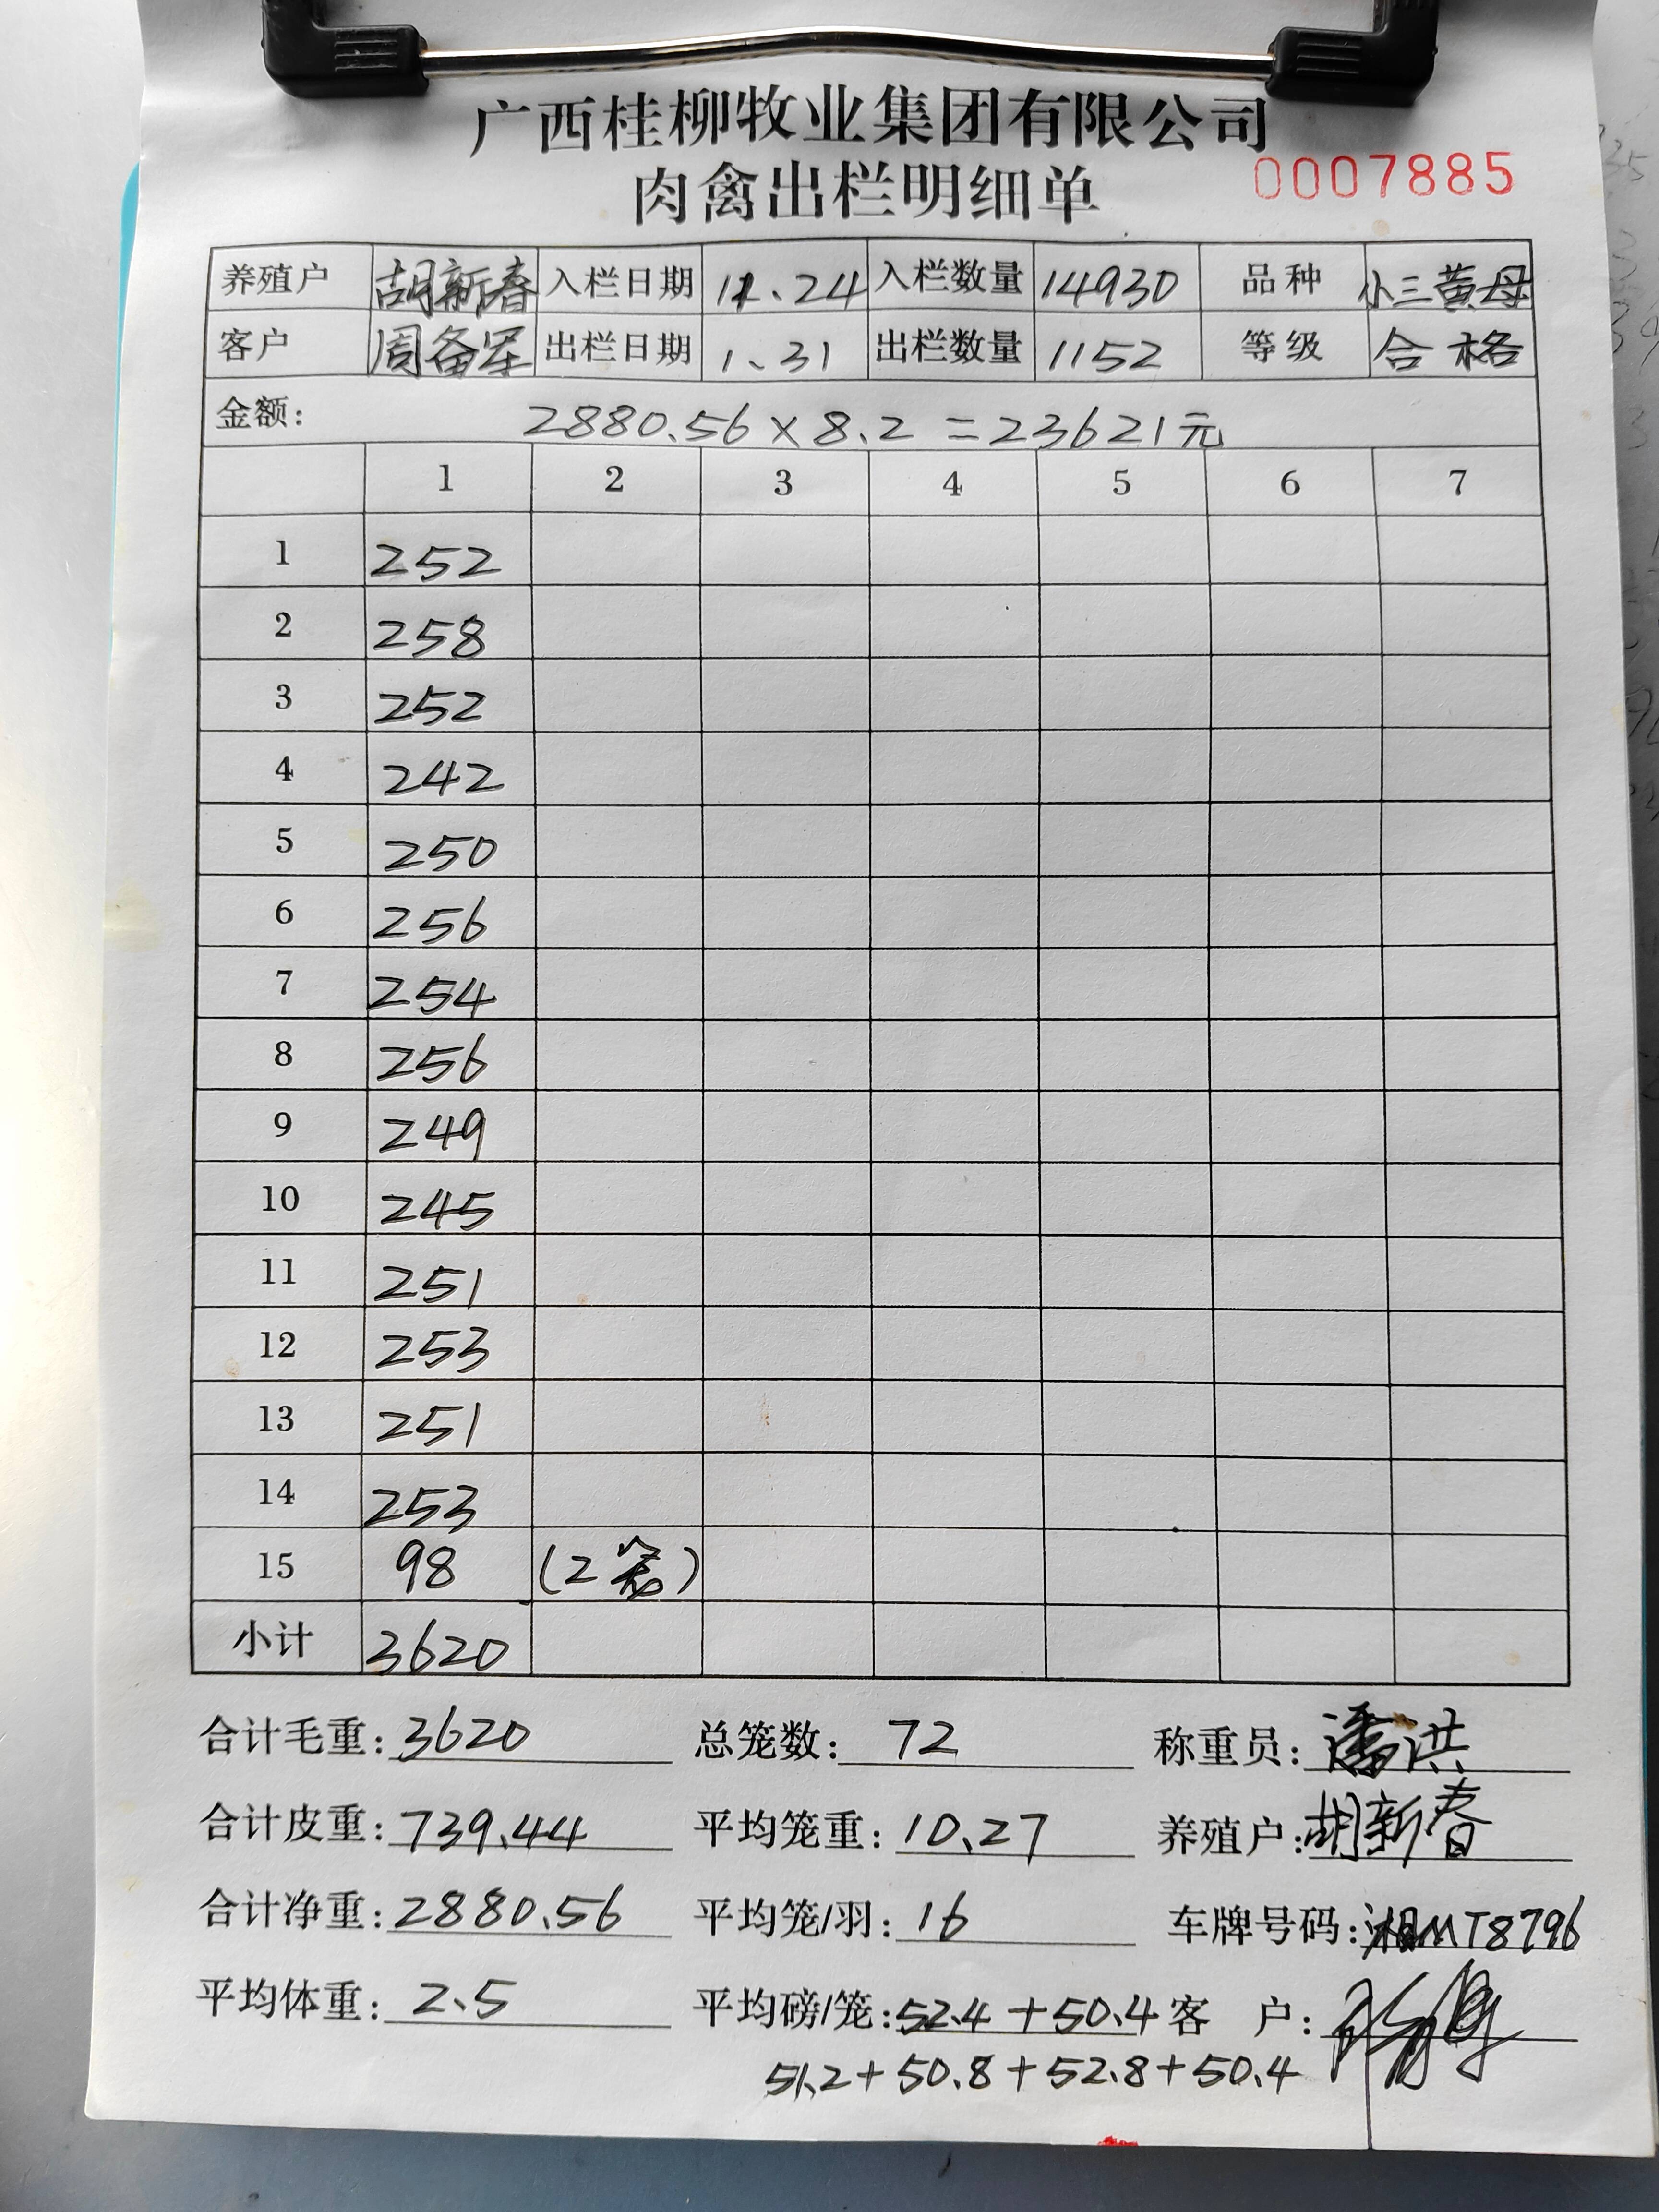 广西桂柳牧业集团有限公司
肉禽出栏明细单
0007885
养殖户 胡新春 入栏日期 11.24 入栏数量 14930 品种 小三黄母
客户 周备军 出栏日期 1.31 出栏数量 1152 等级 合格
金额: 2880.56×8.2=23621元
1 2 3 4 5 6 7
1 252
2 258
3 252
4 242
5 250
6 256
7 254
8 256
9 249
10 245
11 251
12 253
13 251
14 253
15 98 (2笼)
小计 3620
合计毛重: 3620 总笼数: 72 称重员: 潘洪
合计皮重: 739.44 平均笼重: 10.27 养殖户: 胡新春
合计净重: 2880.56 平均笼/羽: 16 车牌号码: 湘MT8796
平均体重: 2.5 平均磅/笼: 52.4+50.4 客户:
51.2+50.8+52.8+50.4